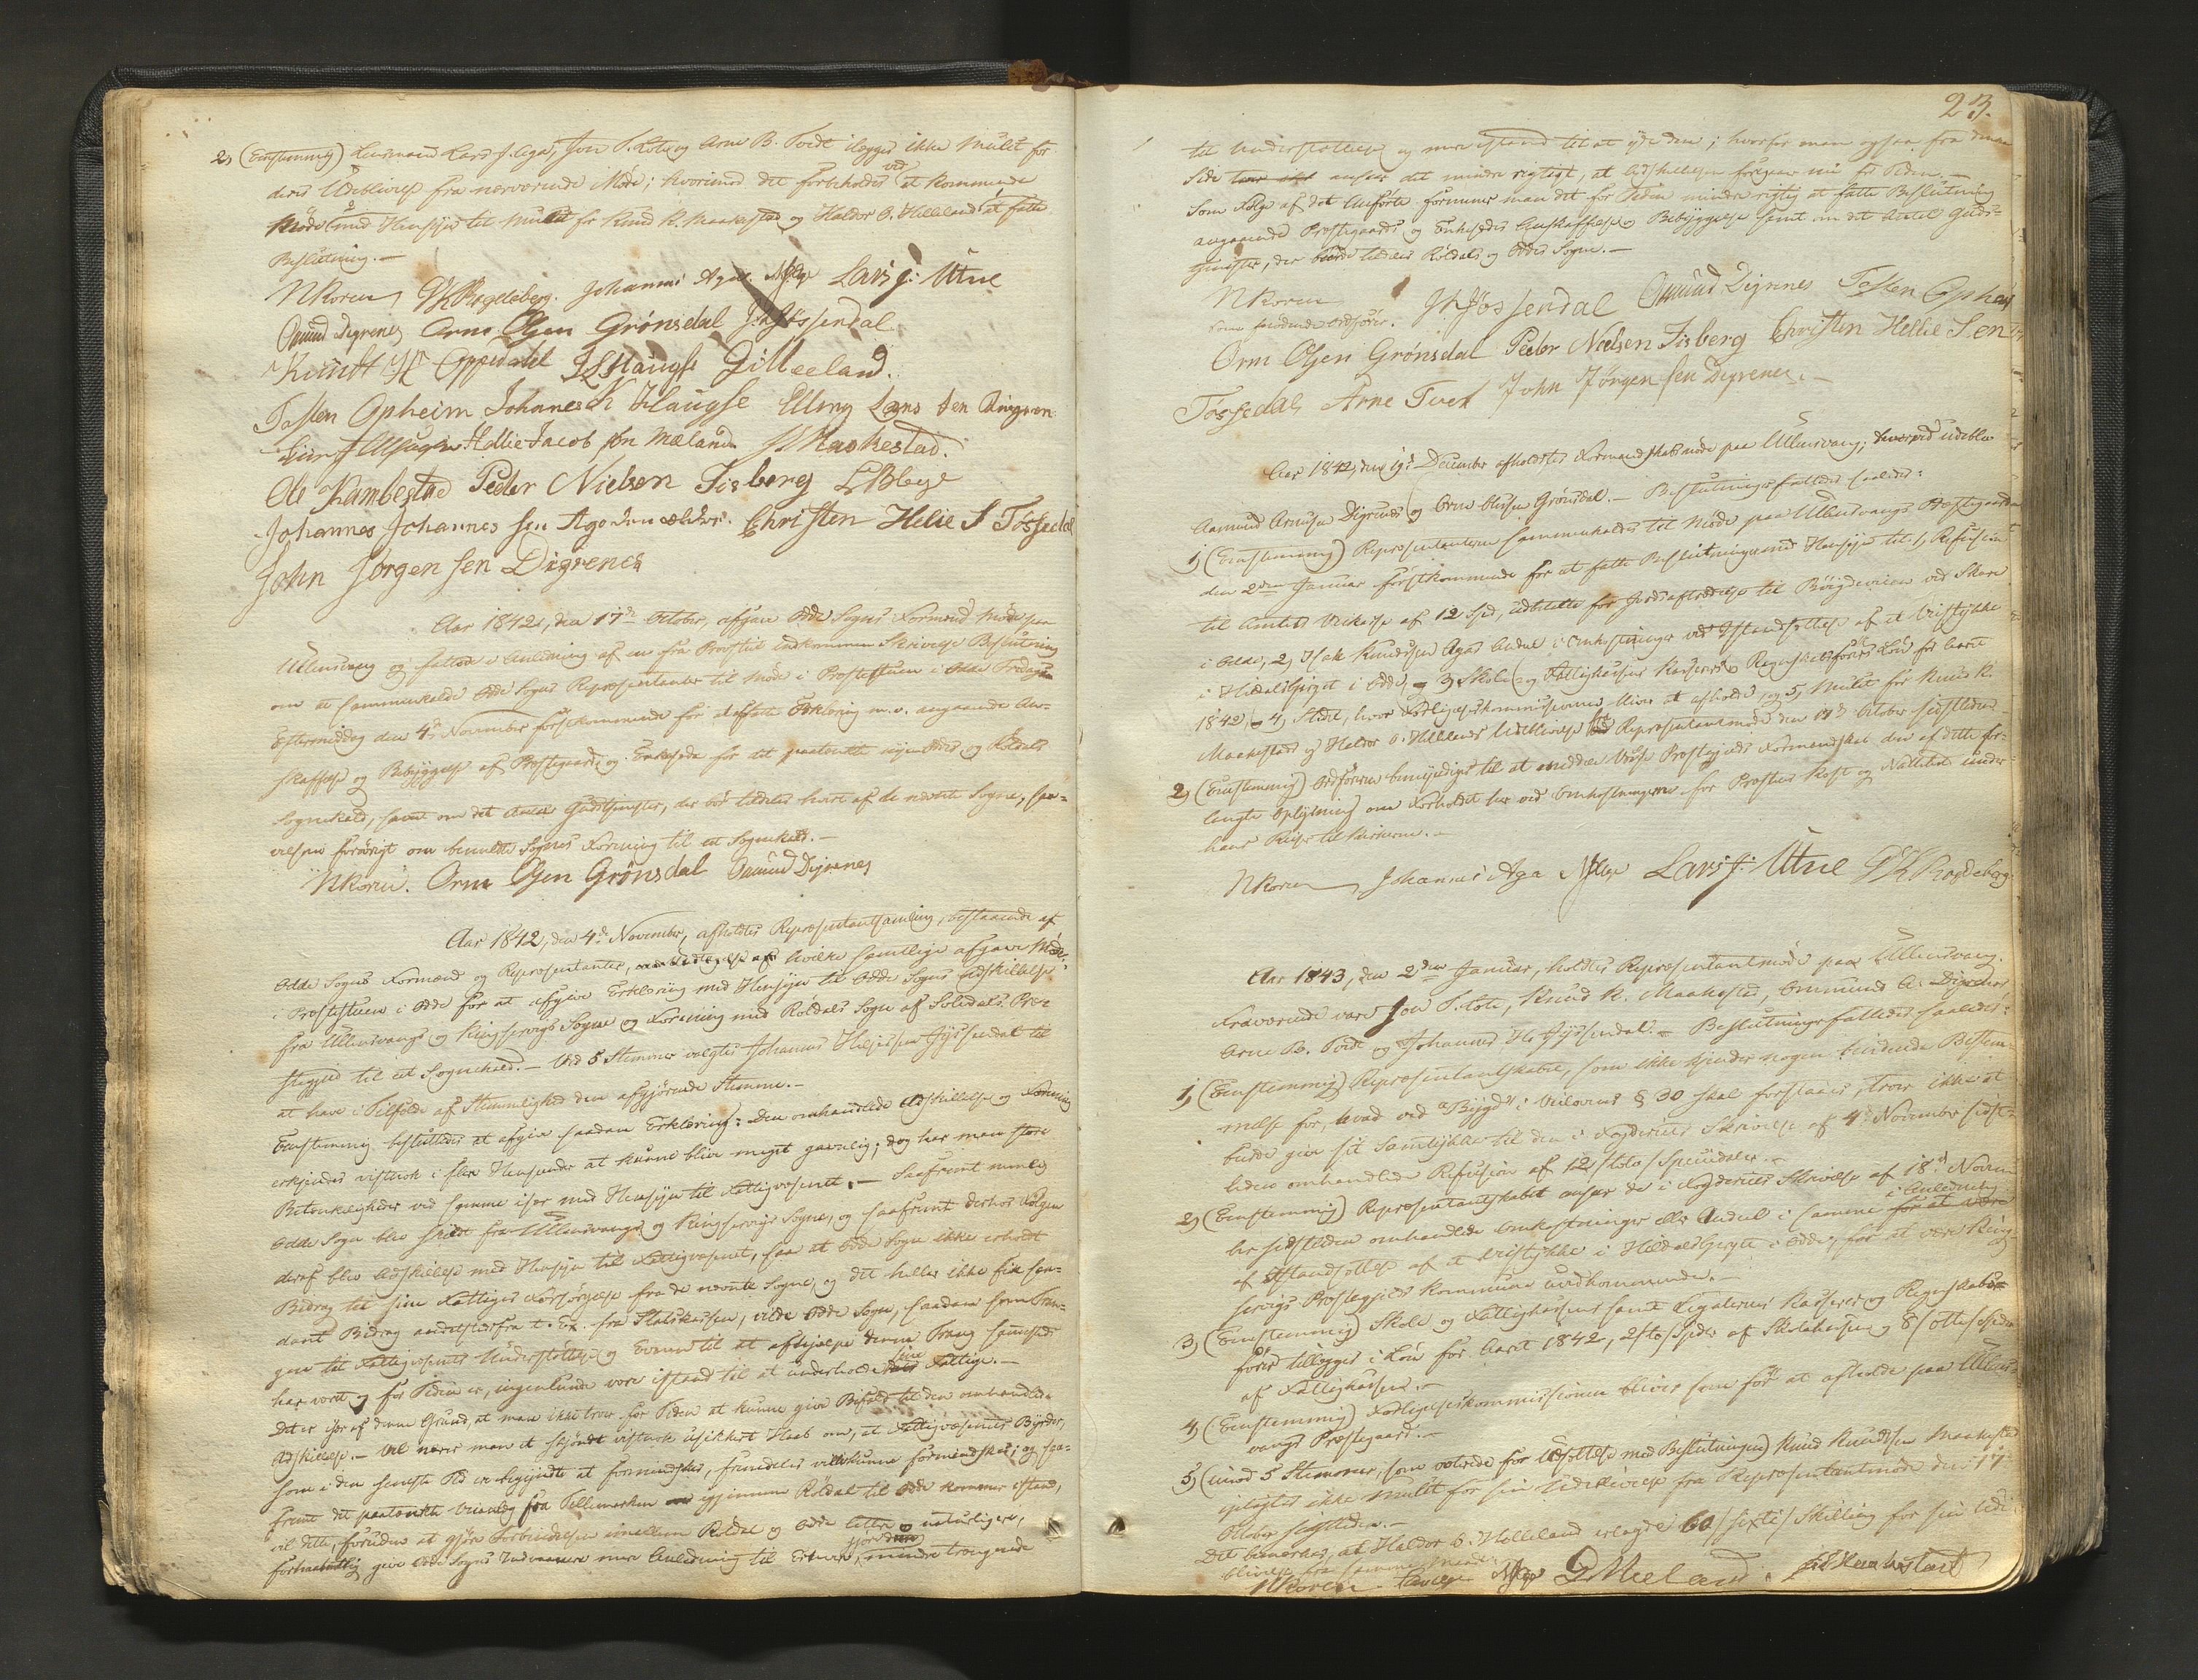 2, (Eenstemmig) Lensmand Lars J. Aga, Jon T. Lote og Arne B. Tveit ilegges ikke Mulct for
deres Udeblivelse fra nærværende Møde; hvorimod det forbeholdes ved et kommende
Møde med Hensyn til Mulct for Knud K. Maakestad og Haldor O. Helleland at fatte
Beslutning.—
NKoren Johannes Aga Lars J: Utne
Omund Digrenes Orm Olsen Grönsdal
Knut Oppedahl
Tosten Opheim Johanes K Haugse Elling
Hellie Jacobsen Mæland Maakestad.
Ole Kambestad Peder Nielsen Fisberg
Johannes Johannessen Aga den ældre. Christen Helie S Tössedal
John Jörgensen Digrenes
Aar 1842, den 17de October, afgave Odde Sogns Formænd Møde paa
Ullensvang og fattede i Anledning af en fra Provstie indkommen Skrivelse Beslutning
om at sammenkalde Odde Sogns Repræsentanter til Møde i Præstestuen i Odde Fredags
Eftermiddag den 4de November førstkommende for at fatte Erklæring m. v. angaaende An-
skaffelse og Bebyggelse af Præstegaard og Enkesæde for det paatænkte nye Oddes og Röldals
Sognekald, samt om det Antal Gudstjenester, der bör tildeles hvert af de nævnte Sogne, saa-
velsom forøvrigt om bemeldte Sognes Forening til et Sognekald.—
NKoren. Orm Olsen Grönsdal Omund Digrenes
Aar 1842, den 4de November, afholdtes Repræsentantsamling, bestaaende af
Odde Sogns Formænd og Repræsentanter, hvilke samtlige afgave Møde
i Præstestuen i Odde for at afgive Erklæring med Hensyn til Odde Sogns Adskillelse
fra Ullensvangs og Kingservigs Sogne og Forening med Röldals Sogn af Suledals Præ-
stegjeld til eet Sognekald.— Ved 5 Stemmer valgtes Johannes Helgesen Jössendal til
at have i Tilfælde af Stemmelighed den afgjörende Stemme.—
Eenstemmig besluttedes at afgive saadan Erklæring: Den omhandlede Adskillelse og Forening
erkjendes vistnok i flere Henseender at kunne blive meget gavnlig; dog har man store
Betænkeligheder ved samme især med Hensyn til Fattigvæsenet.— Saafremt nemlig
Odde Sogn blev skildt fra Ullensvangs og Kingservigs Sogne, og saafremt derhos Følgen
deraf blev Adskillelse med Hensyn til Fattigvæsenet, saa at Odde Sogn ikke erholdt
Bidrag til sine Fattiges Forsørgelse fra de nævnte Sogne, og det heller ikke fik saa-
dant Bidrag andetstedsfra t. Ex. fra Statskassen, vilde Odde Sogn, saadan som Tran-
gen til Fattigvæsenets Understøttelse og Evnen til at afhjælpe denne Trang sammesteds
har været og for Tiden er, ingenlunde være istand til at underholde sine Fattige.—
Det er især af denne Grund, at man ikke troer for Tiden at kunne give Bifald til den omhandlede
Adskillelse.— Vel nærer man et skjöndt vistnok usikkert Haab om, at Fattigvæsenets Byrder,
som i den seneste Tid er begyndt at formindskes, fremdeles vil kunne formindskes; og saa-
fremt det paatænkte Veianlæg fra Tellemarken igjennem Röldal til Odde kommer istand,
vil dette, foruden at gjöre Forbindelsen imellem Röldal og Odde lettere og naturligere,
forhaabentlig give Odde Sogns Indvaanere mere Anledning til Erhverv, gjöre dem mindre trængende
23.
til Understøttelse og mere istand til at yde den; hvorfor man ogsaa fra denne
Side anseer det mindre rigtigt, at Adskillelsen foregaaer nu for Tiden.—
Som Følge af det Anførte formener man det for Tiden mindre rigtigt at fatte Beslutning
angaaende Præstegaards og Enkesædes Anskaffelse og Bebyggelse samt om det Antal Guds-
tjenester, der burde tildeles Röldals og Oddes Sogne.—
NKoren JHJössendal Omund Digrenes Tosten Opheim
Orm Olsen Grönsdal Peder Nielsen Fisberg Christen Hellie Sen
Tössedal Arne Tveit John Jörgensen Digrenes.—
Aar 1842, den 19de December afholdtes Formandskabsmøde paa Ullensvang; hvorved udebleve
Aamund Arnesen Digrenes og Orm Olsen Grönsdal.— Beslutninger fattedes saaledes:
1, (Eenstemmig) Repræsentanterne sammenkaldes til Møde paa Ullensvangs Præstegaard
den 2den Januar førstkommende for at fatte Beslutninger med Hensyn til: 1, Refusion
til Amtets Veikasse af 12 Spd, udbetalte for Jordafstaaelse til Bøigdeveien ved Skare
i Odde, 2, Isak Knudsen Agas Andel i Omkostninger ved Istandsættelse af et Veistykke
i Hildalsbjerget i Odde, 3, Skole- og Fattigkassens Kasserers og Regnskabsførers Løn for Aaret
1842, 4, Stedet, hvor Forligelseskommissionen bliver at afholde, og 5, Mulct for Knud K.
Maakestads og Haldor O. Hellelands Udeblivelse fra Repræsentantmøde den 17de October sidstleden.—
2, (Eenstemmig) Ordføreren bemyndiges til at meddele Vosse Præstegjelds Formandskab den af dette for-
langte Oplysning om Forholdet her ved Omkostningerne for Præstens Kost og Natteleie under
hans Reiser til Kirkerne.—
NKoren Johannes Aga Lars J: Utne
Aar 1843, den 2den Januar, holdtes Repræsentantmøde paa Ullensvang.
Fraværende vare Jon T. Lote, Knud K. Maakestad, Ommund A. Digrenes
Arne B. Tveit og Johannes H. Jössendal.— Beslutninger fattedes saaledes:
1, (Eenstemmig) Repræsentantskabet, som ikke kjender nogen bindende Bestem-
melse for, hvad ved "Bygd" i Veilovens § 30 skal forstaaes, troer ikke at
burde give sit Samtykke til den i Fogderiets Skrivelse af 4de November sidst-
leden omhandlede Refusion af 12 /tolv/ Speciedaler.—
2, (Eenstemmig) Repræsentantskabet anseer de i Fogderiets Skrivelse af 18de Novem-
ber sidstleden omhandlede Omkostninger eller Andeel i samme i Anledning
af Istandsættelse af et Veistykke i Hildalsbjerget i Odde, for at være King-
servigs Præstegjelds Kommune uvedkommende.—
3, (Eenstemmig) Skole og Fattigkassens samt Legaternes Kasserer og Regnskabs-
fører tillægges i Løn for Aaret 1842, 2 /to/ Spdlr af Skolekassen og 8 /otte/ Spdlr
af Fattigkassen.—
4, (Eenstemmig) Forligelseskommissionen bliver som før at afholde paa Ullens-
vangs Præstegaard.—
5, (imod 5 Stemmer, som voterede for Udsættelse med Beslutningen) Knud Knudsen Maakestad
ilægges ikke Mulct for sin Udeblivelse fra Repræsentantmøde den 17
October sidstleden.—
Det bemærkes, at Haldor O. Helleland erlagde 60 /sexti/ Skilling for sin Ude-
blivelse fra samme Møde.
NKoren